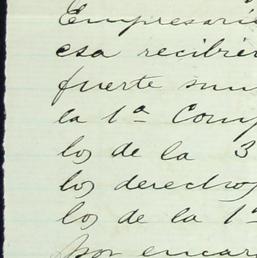 Empresari
esa recibier
fuerte sum
la 1ª Comp
los de la 3
los derechos
los de la 1ª
por encar